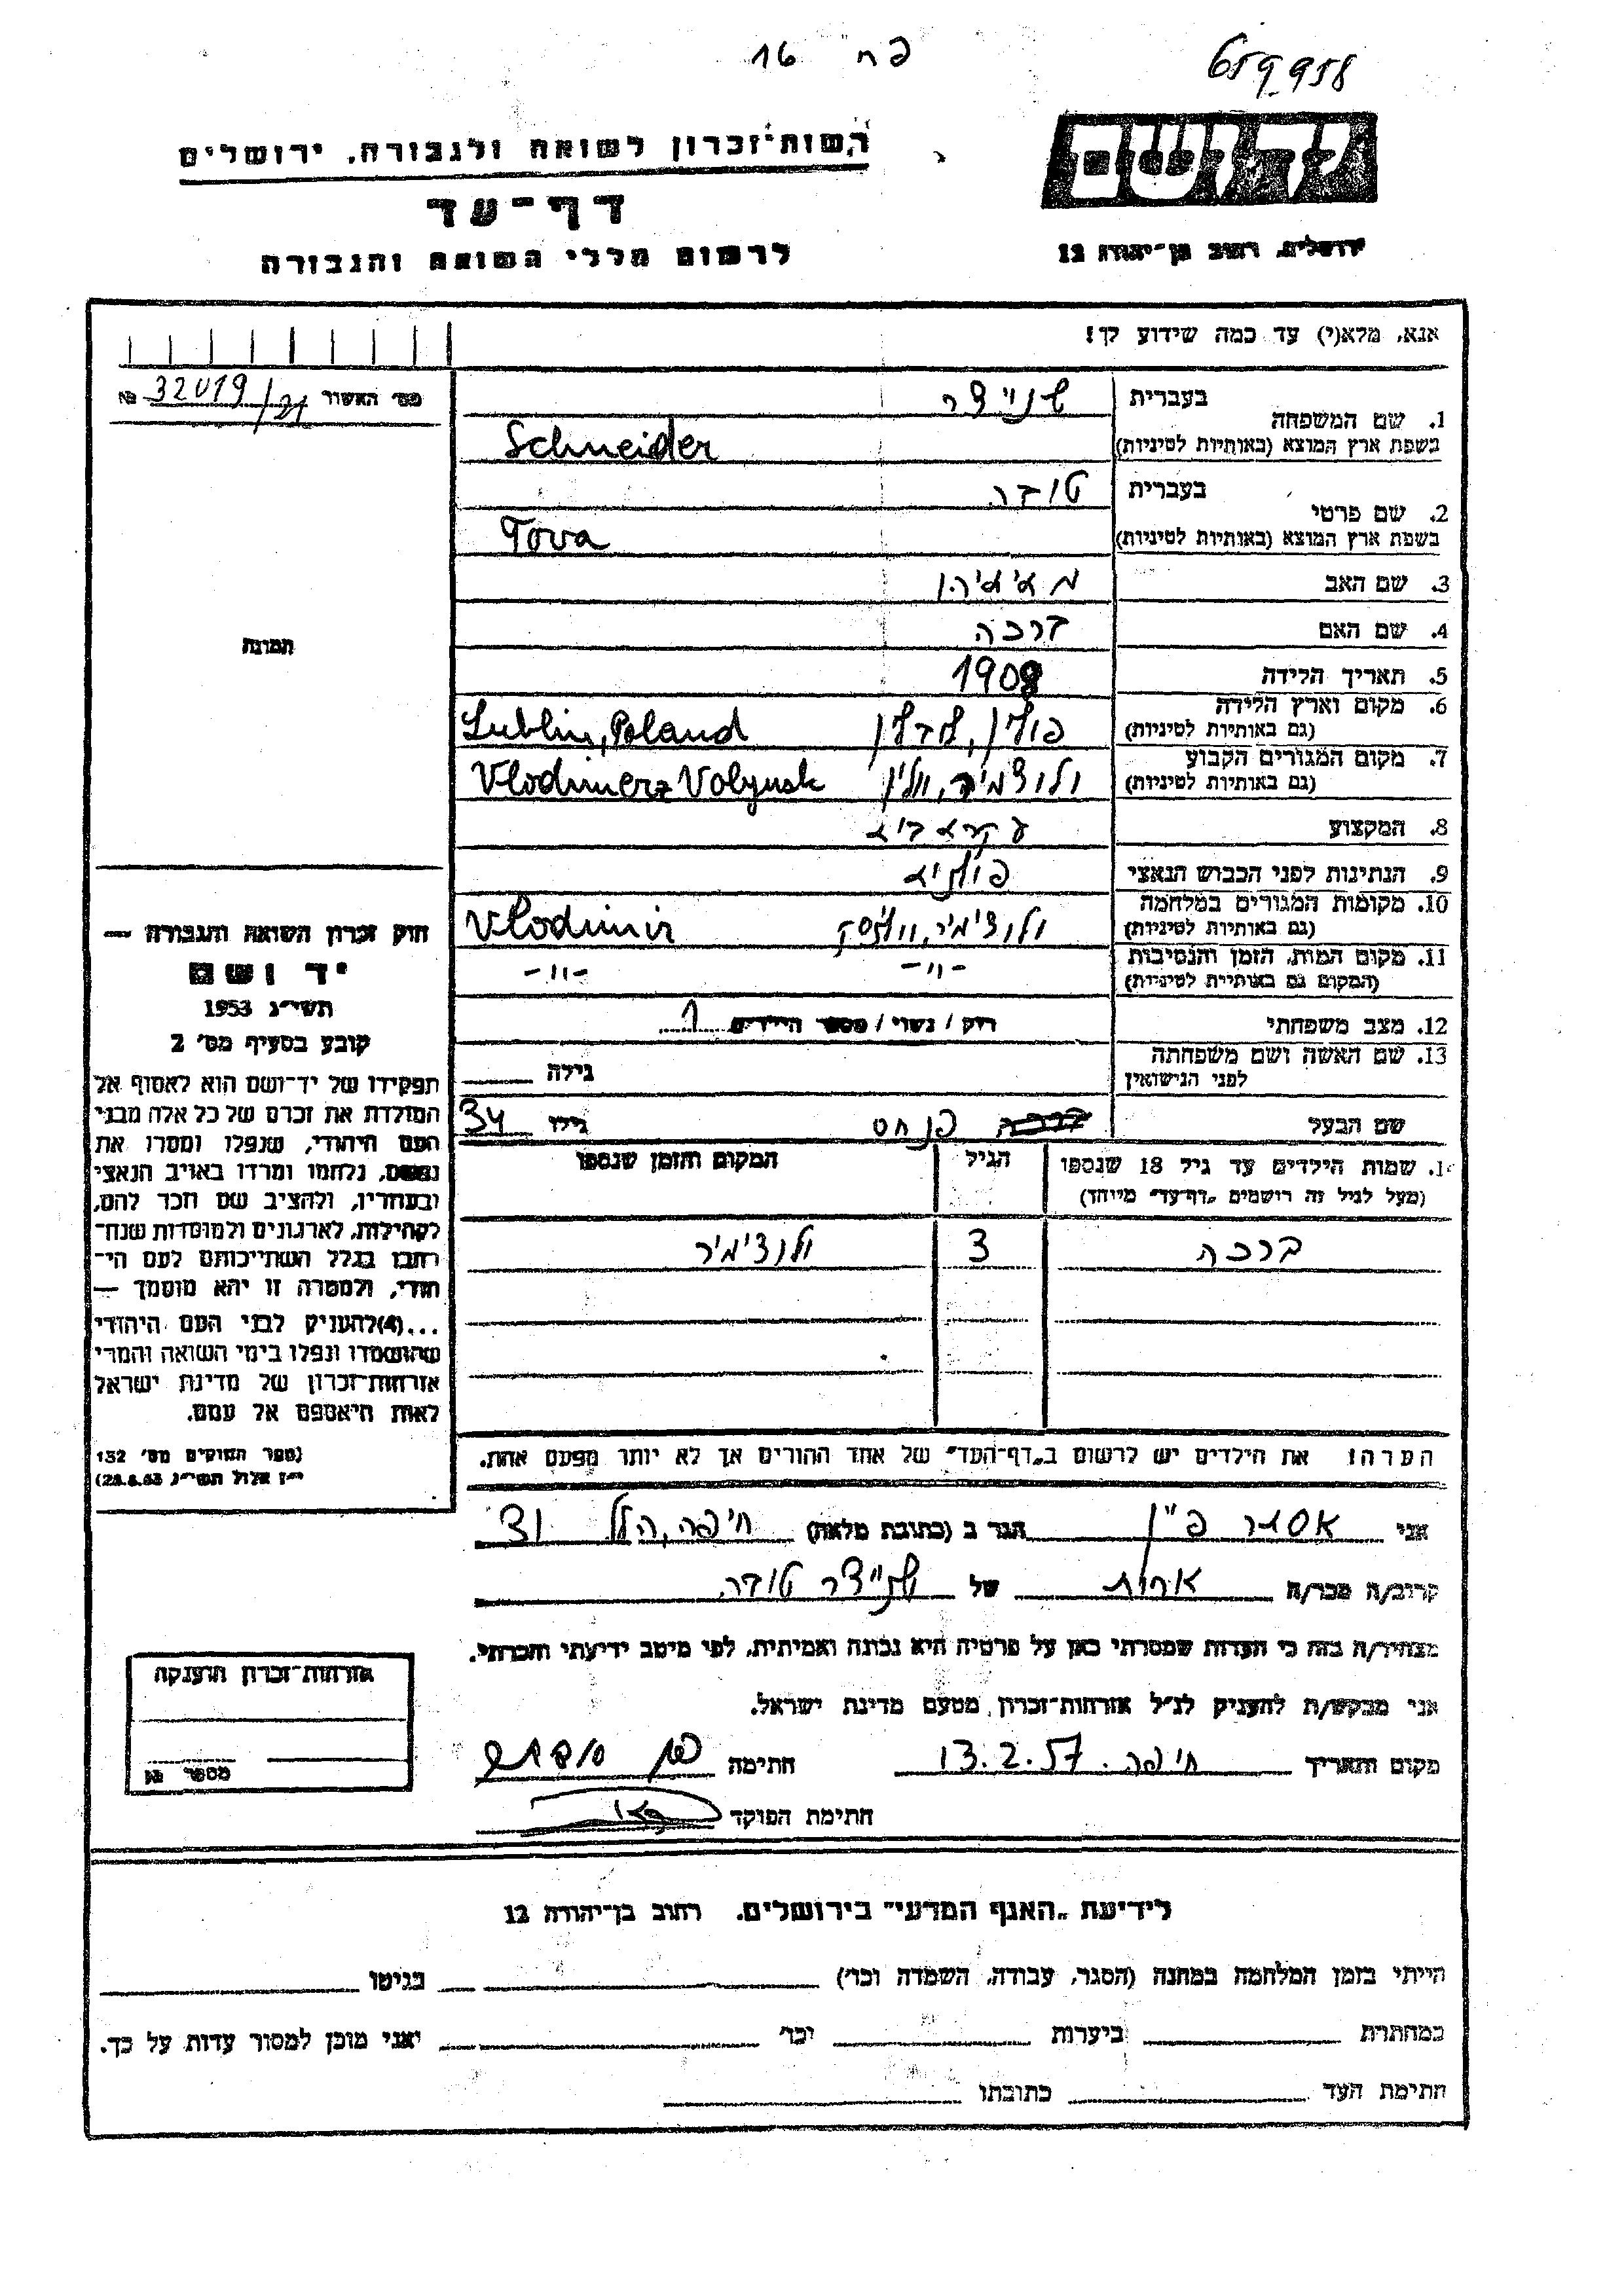 פח 16
659958
רשות־זכרון לשואה ולגבורה, ירושלים
דף־עד
לרשום חללי השואה והגבורה
יד ושם
ירושלים, רחוב בן־יהודה 12
אנא, מלא(י) עד כמה שידוע לך!
מס׳ האשור 32019/21 №
1. שם המשפחה בעברית שניידר
בשפת ארץ המוצא (באותיות לטיניות) Schneider
2. שם פרטי בעברית טובה
בשפת ארץ המוצא (באותיות לטיניות) Tova
3. שם האב
4. שם האם ברכה
5. תאריך הלידה 1908
6. מקום וארץ הלידה (גם באותיות לטיניות) פולין, לובלין Lublin, Poland
7. מקום המגורים הקבוע (גם באותיות לטיניות) ולודצמיר, ווֹלין Vlodimerz Volynsk
8. המקצוע עקרא ביא
9. הנתינות לפני הכבוש הנאצי פולניא
10. מקומות המגורים במלחמה (גם באותיות לטיניות) ולודצימיר, Vlodimir
11. מקום המות, הזמן והנסיבות (המקום גם באותיות לטיניות) -״- -״-
12. מצב משפחתי רוק / נשוי / מספר הילדים 1
13. שם האשה ושם משפחתה לפני הנישואין גילה
שם הבעל פנחס גילו 34
תמונה
חוק זכרון השואה והגבורה —
יד ושם
תשי״ג 1953
קובע בסעיף מס׳ 2
תפקידו של יד־ושם הוא לאסוף אל
המולדת את זכרם של כל אלה מבני
העם היהודי, שנפלו ומסרו את
נפשם, נלחמו ומרדו באויב הנאצי
ובעוזריו, ולהציב שם וזכר להם,
לקהילות, לארגונים ולמוסדות שנח־
רבו בגלל השתייכותם לעם הי־
הודי, ולמטרה זו יהא מוסמך —
...(4)להעניק לבני העם היהודי
שהושמדו ונפלו בימי השואה והמרי
אזרחות־זכרון של מדינת ישראל
לאות היאספם אל עמם.
(ספר החוקים מס׳ 132
י״ז אלול תשי״ג 28.8.53)
1. שמות הילדים עד גיל 18 שנספו הגיל המקום והזמן שנספו
(מעל לגיל זה רושמים „דף־עד״ מייוחד)
ברכה 3 ולודצימיר
הערה: את הילדים יש לרשום ב„דף־העד״ של אחד ההורים אך לא יותר מפעם אחת.
אני אסתר פיין הגר ב (כתובת מלאה) חיפה, הלל 31
קרוב/ה מכר/ה אחות של שניידר טובה
מצהיר/ה בזה כי העדות שמסרתי כאן על פרטיה היא נכונה ואמיתית, לפי מיטב ידיעתי והכרתי.
אני מבקש/ת להעניק לנ״ל אזרחות־זכרון מטעם מדינת ישראל.
מקום ותאריך חיפה. 13.2.57 חתימה
חתימת הפוקד
אזרחות־זכרון הוענקה
מספר №
לידיעת „האגף המדעי״ בירושלים. רחוב בן־יהודה 12
הייתי בזמן המלחמה במחנה (הסגר, עבודה, השמדה וכר׳) בגיטו
במחתרת ביערות וכר׳ ואני מוכן למסור עדות על כך.
חתימת העד כתובתו